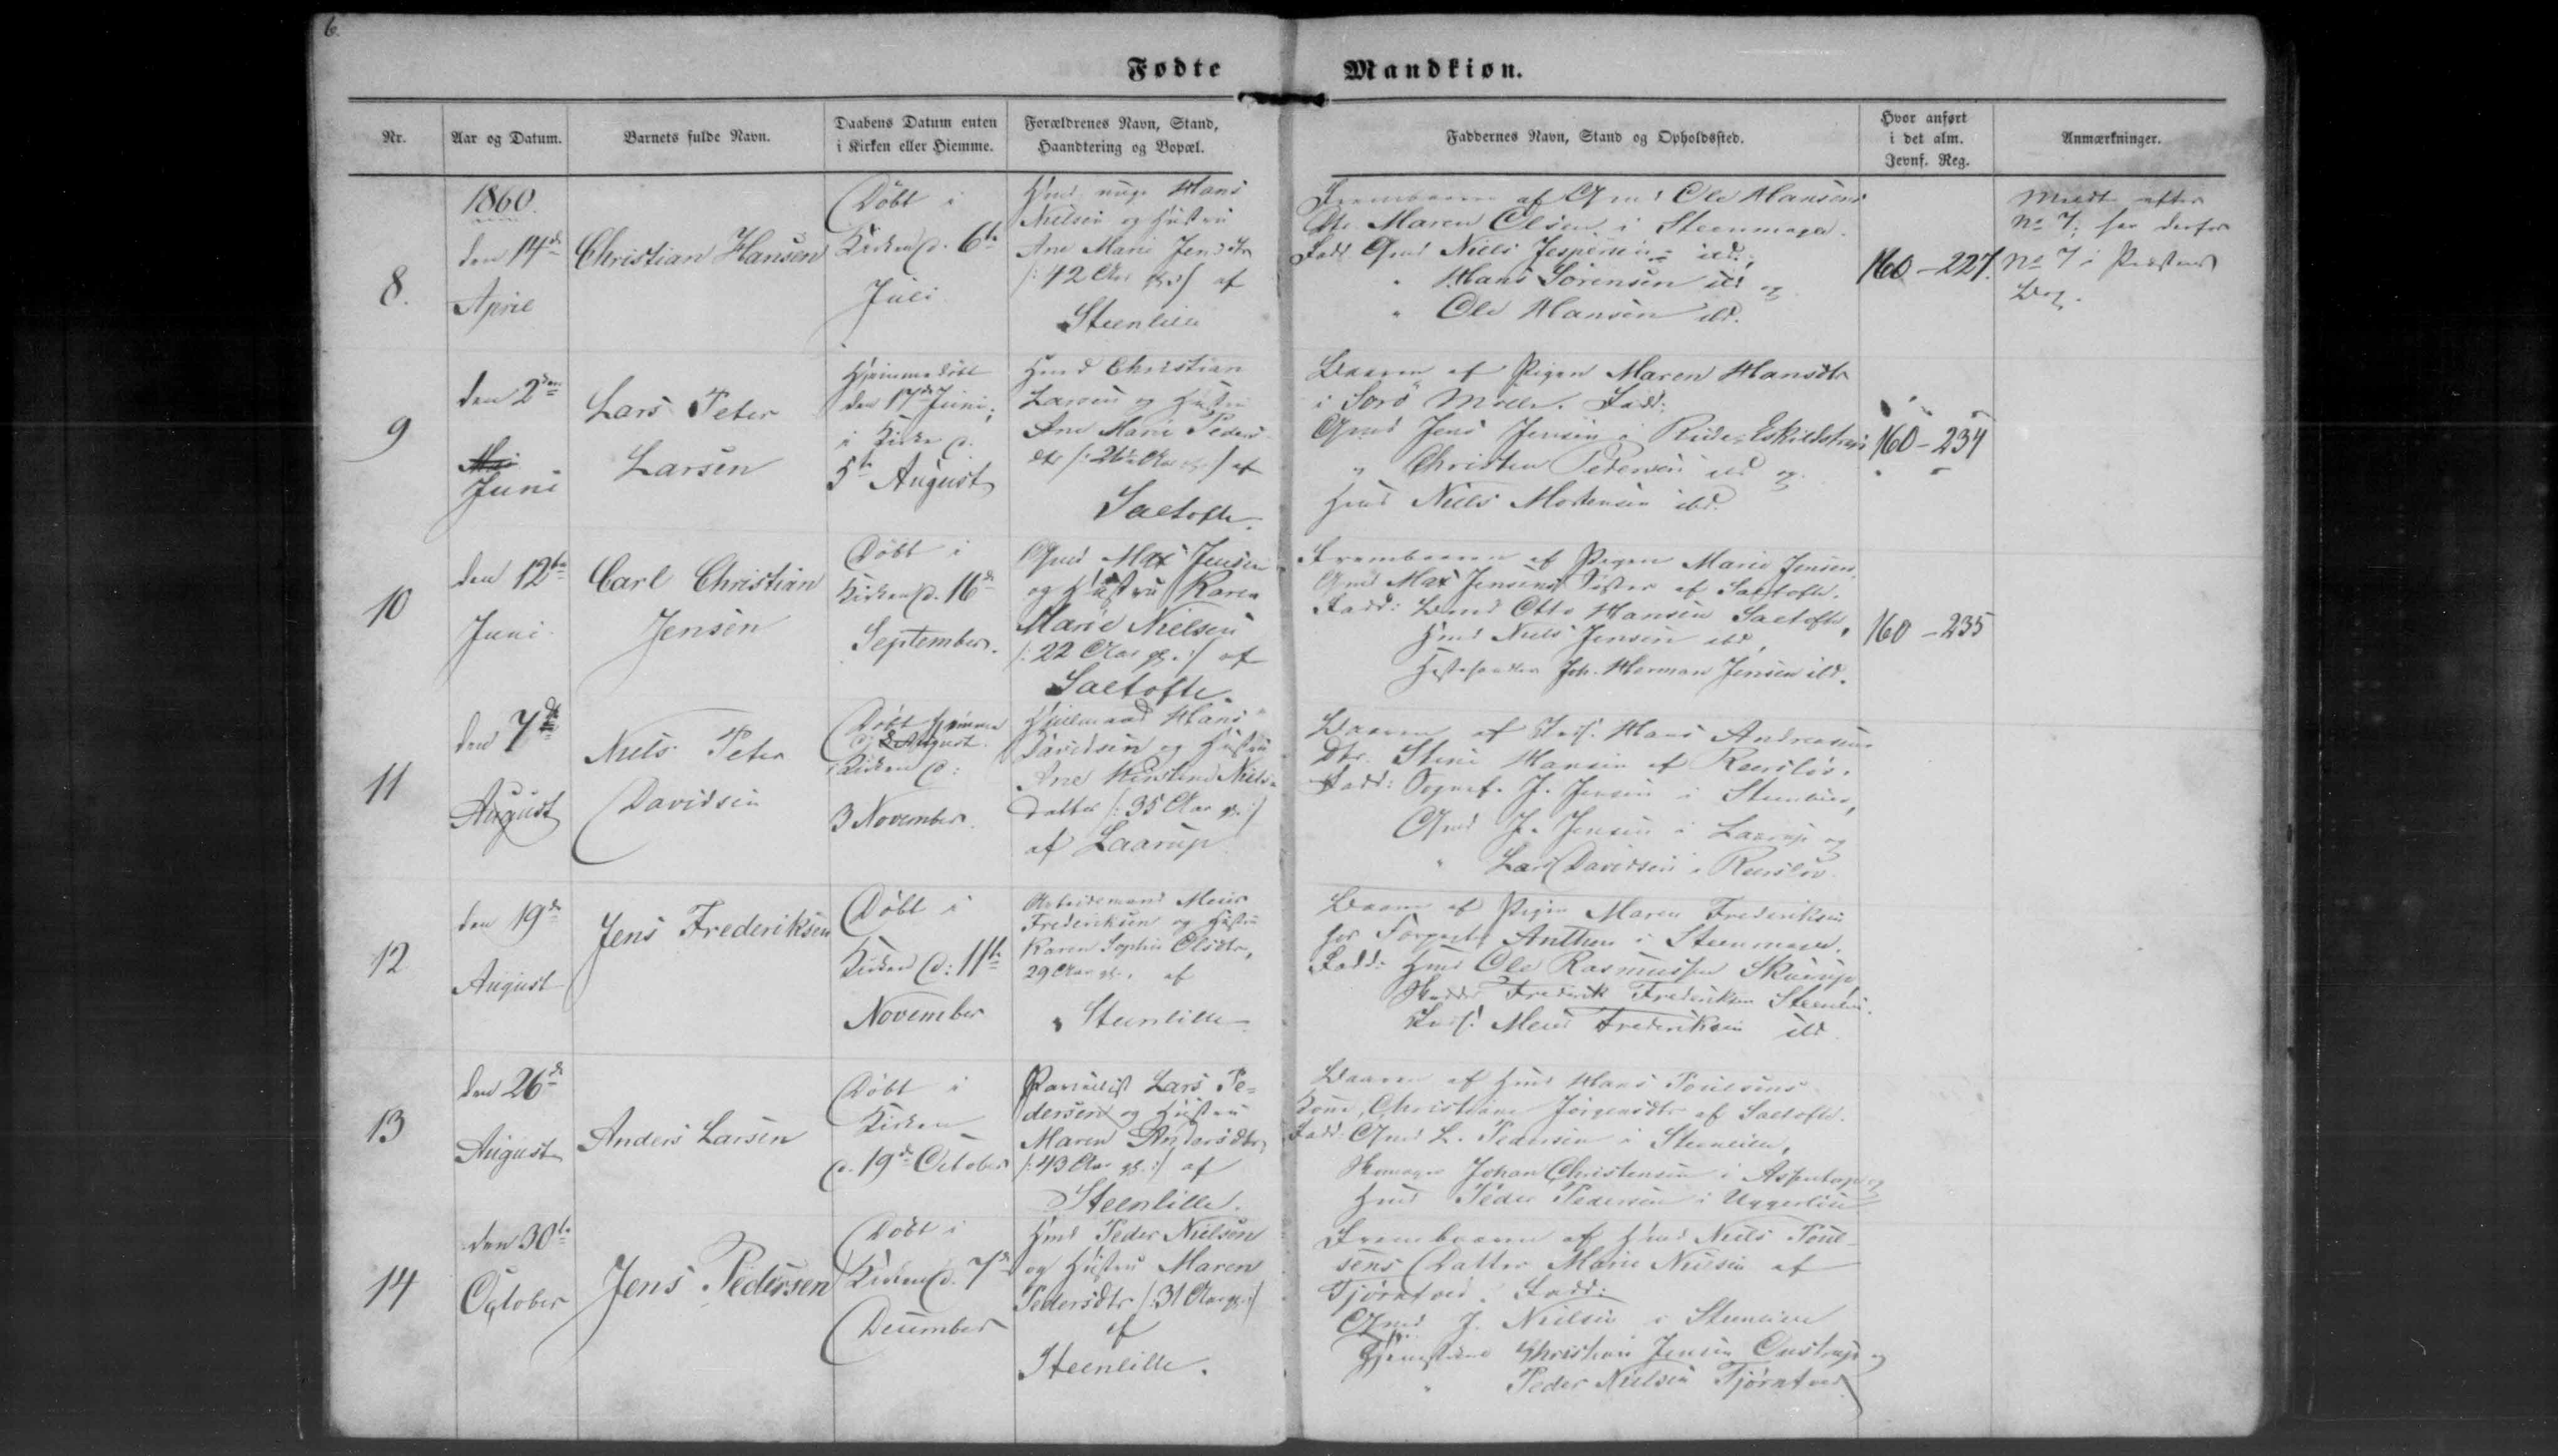 6.
Fødte
Mandkiøn.
Nr.
Aar og Datum.
Barnets fulde Navn.
Daabens Datum enten
i Kirken eller Hiemme.
Forældrenes Navn, Stand,
Haandtering og Bopæl.
Faddernes Navn, Stand og Opholdssted.
Hvor anført
i det alm.
Jevnf. Reg.
Anmærkninger.
8.
1860.
den 14de
April
Christian Hansen
Døbt i
Kirken d. 6te
Juli
Hmd. unge Hans
Nielsen og Hustru
Ane Marie Jensdtr
/: 42 Aar gl :/ af
Steenlille
Frembaaren af Gmd Ole Hansens
Maren Olsen i Steenmagle.
Fadd. Gmd Niels Jespersen ibd,
" Hans Sørensen ibd og
" Ole Hansen ibd.
160 - 227.
Meldt efter
No 7, før derfor
No 7 i Præstens
Bog.
9
den 2den
Mai
Juni
Lars Peter
Larsen
Hjemmedøbt
den 17de Juni;
i Kirke d.
5te August
Hmd Christian
Larsen og Hustru
Ane Marie Peders-
dtr /: 26 Aar gl :/ af
Saltofte.
Baaren af Pigen Maren Hansdtr
i Sorø Mølle. Fadd:
Gmd Jens Jensen i Eskildstrup
" Christen Pedersen ibd og
Hmd Niels Mortensen ibd.
160 - 234
10
den 12te
Juni
Carl Christian
Jensen
Døbt i
Kirken d. 16de
September.
Gmd Max Jensen
og Hustru Karen
Marie Nielsen
/: 22 Aar gl. :/ af
Saltofte.
Frembaaren af Pigen Marie Jensen,
Gmd Max Jensens Søster af Saltofte.
Fadd: Otto Hansen Saltofte,
Hmd Niels Jensen ibd,
Joh. Herman Jensen ibd.
160 - 235
11
den 7de
August
Niels Peter
Davidsen
Døbt hjemme
d. 8 August.
i Kirken d:
3 November.
Hjulmand Hans
Davidsen og Hustru
Ane Kirstine Niels-
datter /: 35 Aar gl :/
af Laarup
Baaren af Hans Andreasens
Dtr. Stine Hansen af Reersløv.
Fadd: Sognef. J. Jensen i Steenlille,
Gmd J. Jensen i Laarup og
" Lars Davidsen i Reersløv.
12
den 19de
August
Jens Frederiksen
Døbt i
Kirken d: 11te
November
Arbeidsmand Meier
Frederiksen og Hustru
Karen Sophie Olsdtr,
29 Aar gl. af
Steenlille
Baaren af Pigen Maren Frederiksen
hos Anthon i Steenmagle.
Fadd: Hmd Ole Rasmussen Skuerup
Frederik Frederiksen Steenlille.
Meier Frederiksen ibd
13
den 26de
August
Anders Larsen
Døbt i
Kirken
d. 19de October
Lars Pe-
dersen og Hustru
Maren Andersdtr
/: 43 Aar gl :/ af
Steenlille.
Baaren af Hmd Hans Poulsens
Kone, Christiane Jørgensdtr af Saltofte.
Fadd: Gmd L. Pedersen i Steenlille,
Skomager Johan Christensen i og
Hmd Peder Pedersen i Uggerløse
14
den 30te
October
Jens Pedersen
Døbt i
Kirken d. 7de
December
Hmd Peder Nielsen
og Hustru Maren
Pedersdtr /: 31 Aar gl :/
af
Steenlille.
Frembaaren af Hmd Niels Poul-
sens Datter Marie Nielsen af
Tjørntved. Fadd:
Gmd J. Nielsen i Steenlille
Christian Jensen og
" Peder Nielsen Tjørntved